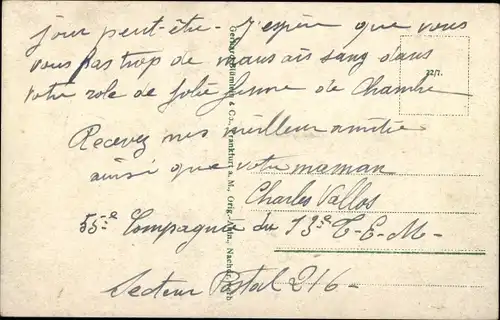 jour peut-être - J'espère que vous
vous pas trop de mauvais sang dans
votre role de jolie femme de chambre
Recevez mes meilleur amitie
ainsi que votre maman
Charles Vallos
55-e Compagnie du 13-e T-E-M-
Secteur Postal 216-
22/7.
Gerhard Blümlein & Co., Frankfurt a. M., Orig.-Aufn., Nachdr. verb